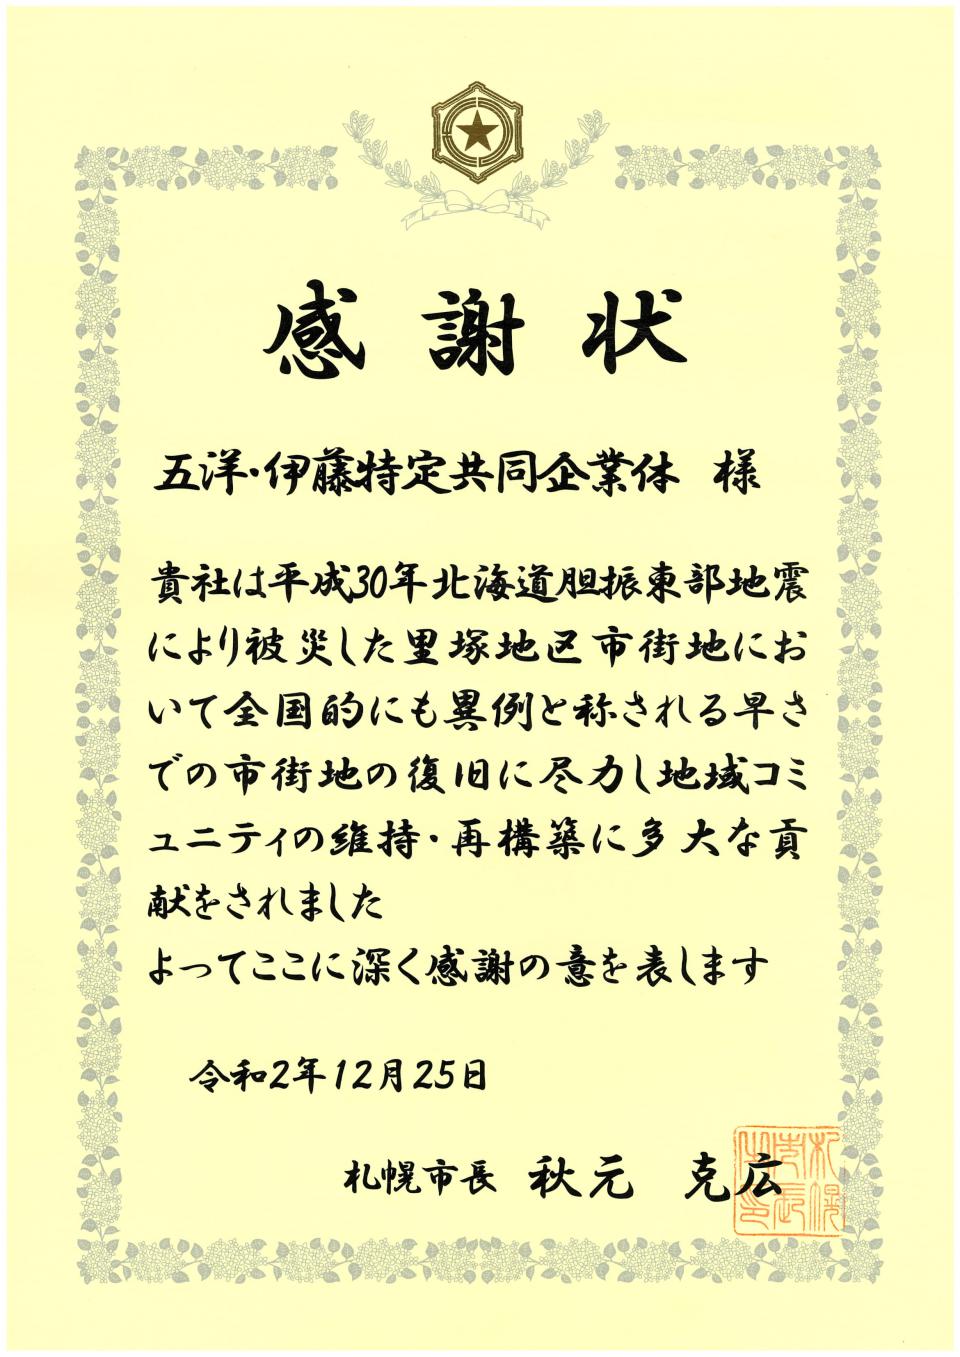 感謝状
五洋・伊藤特定共同企業体 様
貴社は平成30年北海道胆振東部地震
により被災した里塚地区市街地にお
いて全国的にも異例と称される早さ
での市街地の復旧に尽力し地域コミ
ュニティの維持・再構築に多大な貢
献をされました
よってここに深く感謝の意を表します
令和2年12月25日
札幌市長 秋元 克広
札幌市長之印